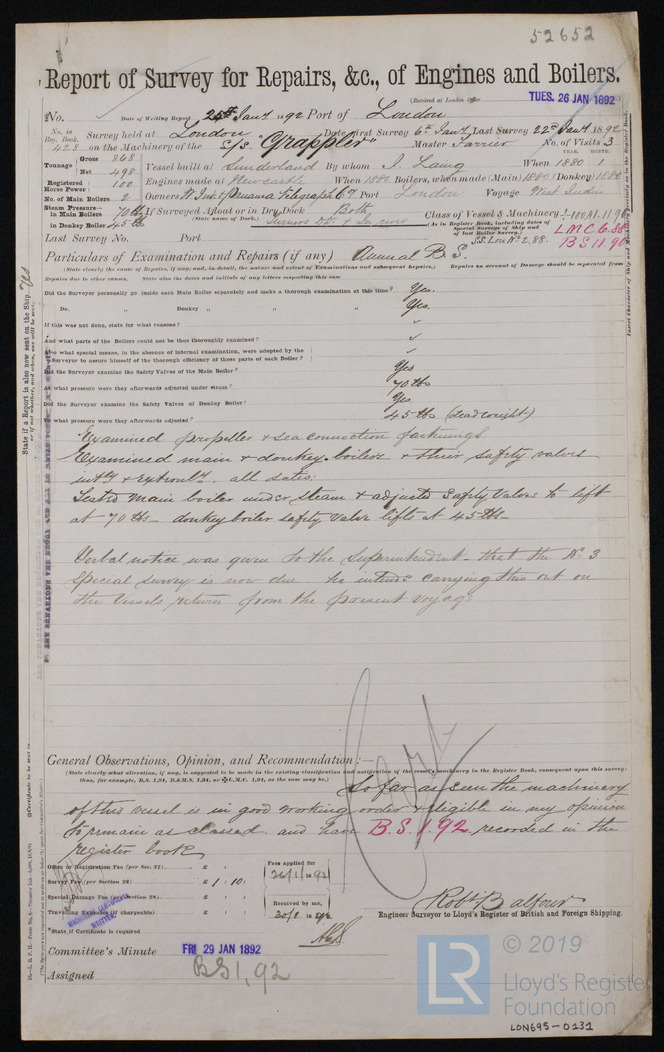 52652
Report of Survey for Repairs, &c., of Engines and Boilers.
(Received at London Office TUES. 26 JAN 1892)
No. Date of Writing Report 25th Jany 1892 Port of London
No. in Reg. Book. 428 Survey held at London Date, first Survey 6th Jany Last Survey 22nd Jany 1892
on the Machinery of the S/S. "Grappler" Master Farrier No. of Visits 3
Tonnage Gross 868 Net 498 Vessel built at Sunderland By whom J. Laing When 1880 YEAR. MONTH. 1
Registered Horse Power 100 Engines made at Newcastle When 1880 Boilers, when made (Main) 1880 (Donkey) 1880
No. of Main Boilers 2 Owners W. Ind. & Panama Telegraph Co. Port London Voyage West Indies
Steam Pressure in Main Boilers 70 lbs If Surveyed Afloat or in Dry Dock Both
in Donkey Boiler 45 lbs (State name of Dock.)
Class of Vessel & Machinery
(As in Register Book, including dates of Special Surveys of Ship and of last Boiler Survey.)
LMC 6.88
BS 11.90
SS. Lon No 2. 88.
Last Survey No. Port
Particulars of Examination and Repairs (if any) Annual B S.
(State clearly the cause of Repairs, if any, and, in detail, the nature and extent of Examinations and subsequent Repairs.) Repairs on account of Damage should be separated from
Repairs due to other causes. State also the dates and initials of any letters respecting this case.
Did the Surveyor personally go inside each Main Boiler separately and make a thorough examination at this time? Yes.
Do. „ Donkey „ „ „ Yes.
If this was not done, state for what reasons?
And what parts of the Boilers could not be thus thoroughly examined?
Also what special means, in the absence of internal examination, were adopted by the
Surveyor to assure himself of the thorough efficiency of those parts of each Boiler?
Did the Surveyor examine the Safety Valves of the Main Boiler? Yes
At what pressure were they afterwards adjusted under steam? 70 lbs
Did the Surveyor examine the Safety Valves of Donkey Boiler? Yes
To what pressure were they afterwards adjusted? 45 lbs (dead weight)
Examined propeller & sea connection fastenings.
Examined main & donkey boilers & their safety valves
intly & extnly. all satis:
Tested main boiler under steam & adjusted safety valves to lift
at 70 lbs – donkey boiler safety valve lifts at 45 lbs –
Verbal notice was given to the Superintendent – that the No 3
Special survey is now due he intends carrying this out on
the vessels return from the present voyage.
General Observations, Opinion, and Recommendation:—
(State clearly what alteration, if any, is suggested to be made in the existing classification and notification of the vessel's machinery in the Register Book, consequent upon this survey;
thus, for example, B.S. 1,91, B.&M.S. 1,91, or L.M.C. 1,91, as the case may be.)
So far as seen the machinery
of this vessel is in good working order & eligible in my opinion
to remain as classed and have B.S. 1.92. recorded in the
register book
Office or Registration Fee (per Sec. 27) £ : : Fees applied for
Survey Fee (per Section 28) £ 1 : 10 : 26/1/1892
Special Damage Fee (per Section 28) £ : : Received by me,
Travelling Expenses (if chargeable) £ : : 30/1/1892
State if Certificate is required
MACHINERY CERTIFICATE WRITTEN
Robt Balfour
Engineer Surveyor to Lloyd's Register of British and Foreign Shipping.
Committee's Minute FRI 29 JAN 1892
Assigned BS 1,92
State if a Report is also now sent on the Ship. Yes
or if not whether, and when, one will be sent.
© 2019
LR
Lloyd's Register
Foundation
LON695-0131